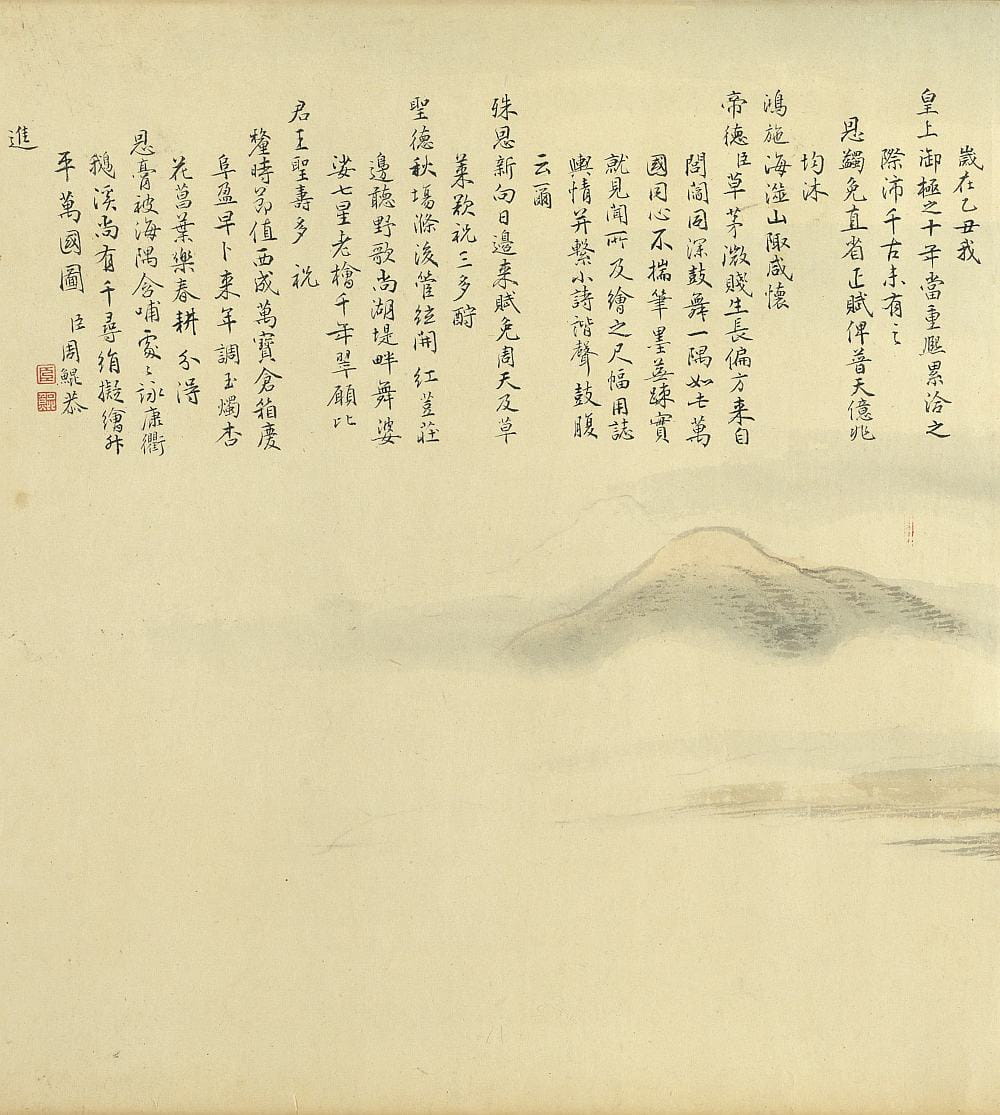 歲在乙丑我
皇上御極之十年當重熈累洽之
際沛千古未有之
恩蠲免直省正賦俾普天億兆
均沐
鴻施海澨山陬咸懷
帝德臣草茅微賤生長偏方来自
閭閻同深鼓舞一隅如是萬
國同心不揣筆墨蕪疎實
就見聞所及繪之尺幅用誌
輿情并繫小詩諧聲鼓腹
云爾
殊恩新向日邊来賦免周天及草
萊歡祝三多酹
聖德秋場滌後管絃開 紅荳莊
邊聽野歌尚湖堤畔舞婆
娑七星老檜千年翠願比
君王聖壽多 祝
釐時節值西成萬寶倉箱慶
阜盈早卜来年調玉燭杏
花菖葉樂春耕 分得
恩膏被海隅含哺處處詠康衢
鵝溪尚有千尋絹擬繪昇
平萬國圖 臣周鯤恭
進